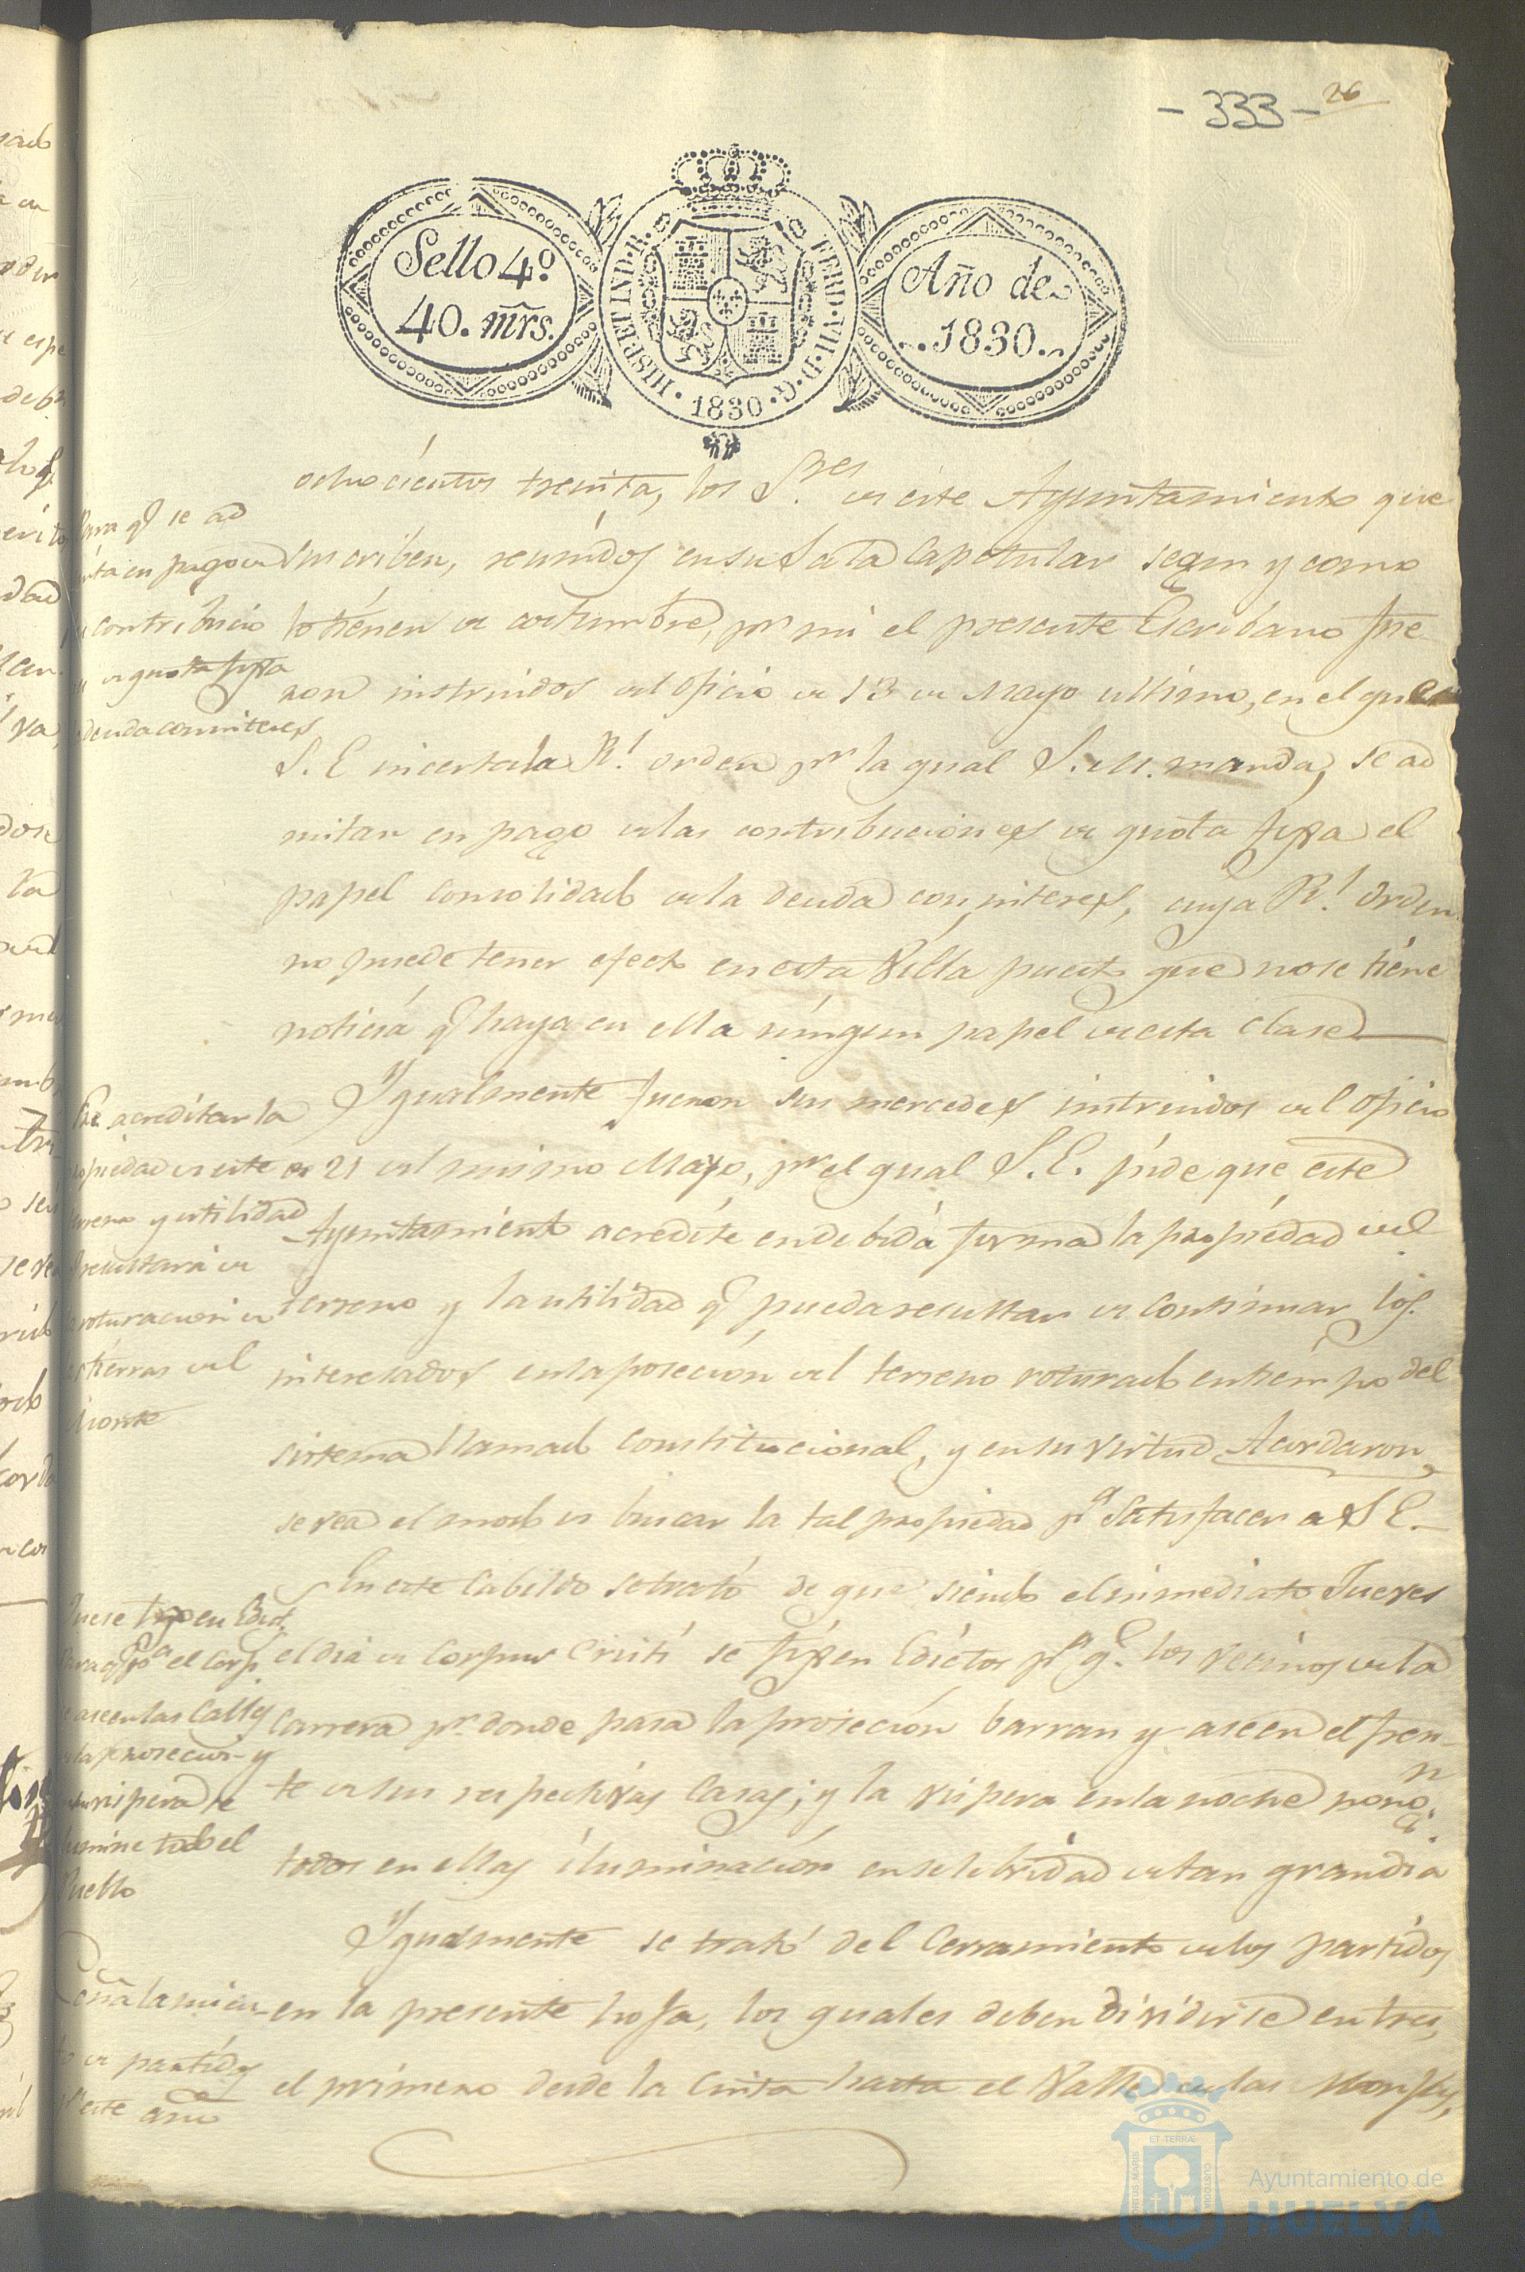 - 333 -
26
Sello 4º
40. mrs.
HISP ET IND. R.
FERD. VII. D. G.
1830
Año de
1830
ochocientos treinta, los S.res de este Ayuntamiento que
suscriben, reunídos en su Sala Capitular segun y como
lo tiénen de costumbre, pr mi el presente Escribano fue-
ron instruidos del Oficio de 13 de Mayo ultimo, en el que
S. E. incerta la Rl. orden pr la qual S. M. manda, se ad
mitan en pago de las contribuciones de quota fixa el
papel consolidado de la deuda con interes, cuya Rl. Orden
no puede tener efecto en esta Villa puesto que no se tiéne
noticia qe haya en ella níngun papel de esta clase
Para qe se ad
mita en pago de
contribucio
de quota fixa
deuda con interes
Ygualmente fueron sus mercedes instruidos del oficio
de 21 del mismo Mayo, pr el qual S. E. píde que este
Ayuntamiento acredíte en debida forma la propíedad del
terreno y la utilidad qe pueda resultar de continuar los
interesados en la posecion del terreno roturado en tiempo del
sistema llamado constitucional, y en su virtud Acordaron
se vea el modo de buscar la tal propiedad pa Satisfacer a S E.
acreditar la
propiedad de este
terreno y utilidad
resultará de
roturacion de
tierras del
Monte
En este Cabildo se trató de que siendo el inmediato Jueves
el dia de Corpus Cristi se fixen Edictos pa qe. los vecinos de la
Carrera pr donde pasa la procecion barran y aseen el fren-
te de sus respectivas Casas; y la vispera en la noche pong.n
todos en ellas iluminacion en selebridad de tan gran dia
Que se fixen Edict.
para qe pa el Corp.
aseen las Calles
la prosecion y
vispera se
ilumine todo el
Pueblo
Ygualmente se trató del Cerramiento de los partidos
en la presente hoja, los quales deben dividirse en tres,
el primero desde la Cinta hasta el Valle de las
Señalamien-
to de partidos
pa este año
Ayuntamiento de
HUELVA